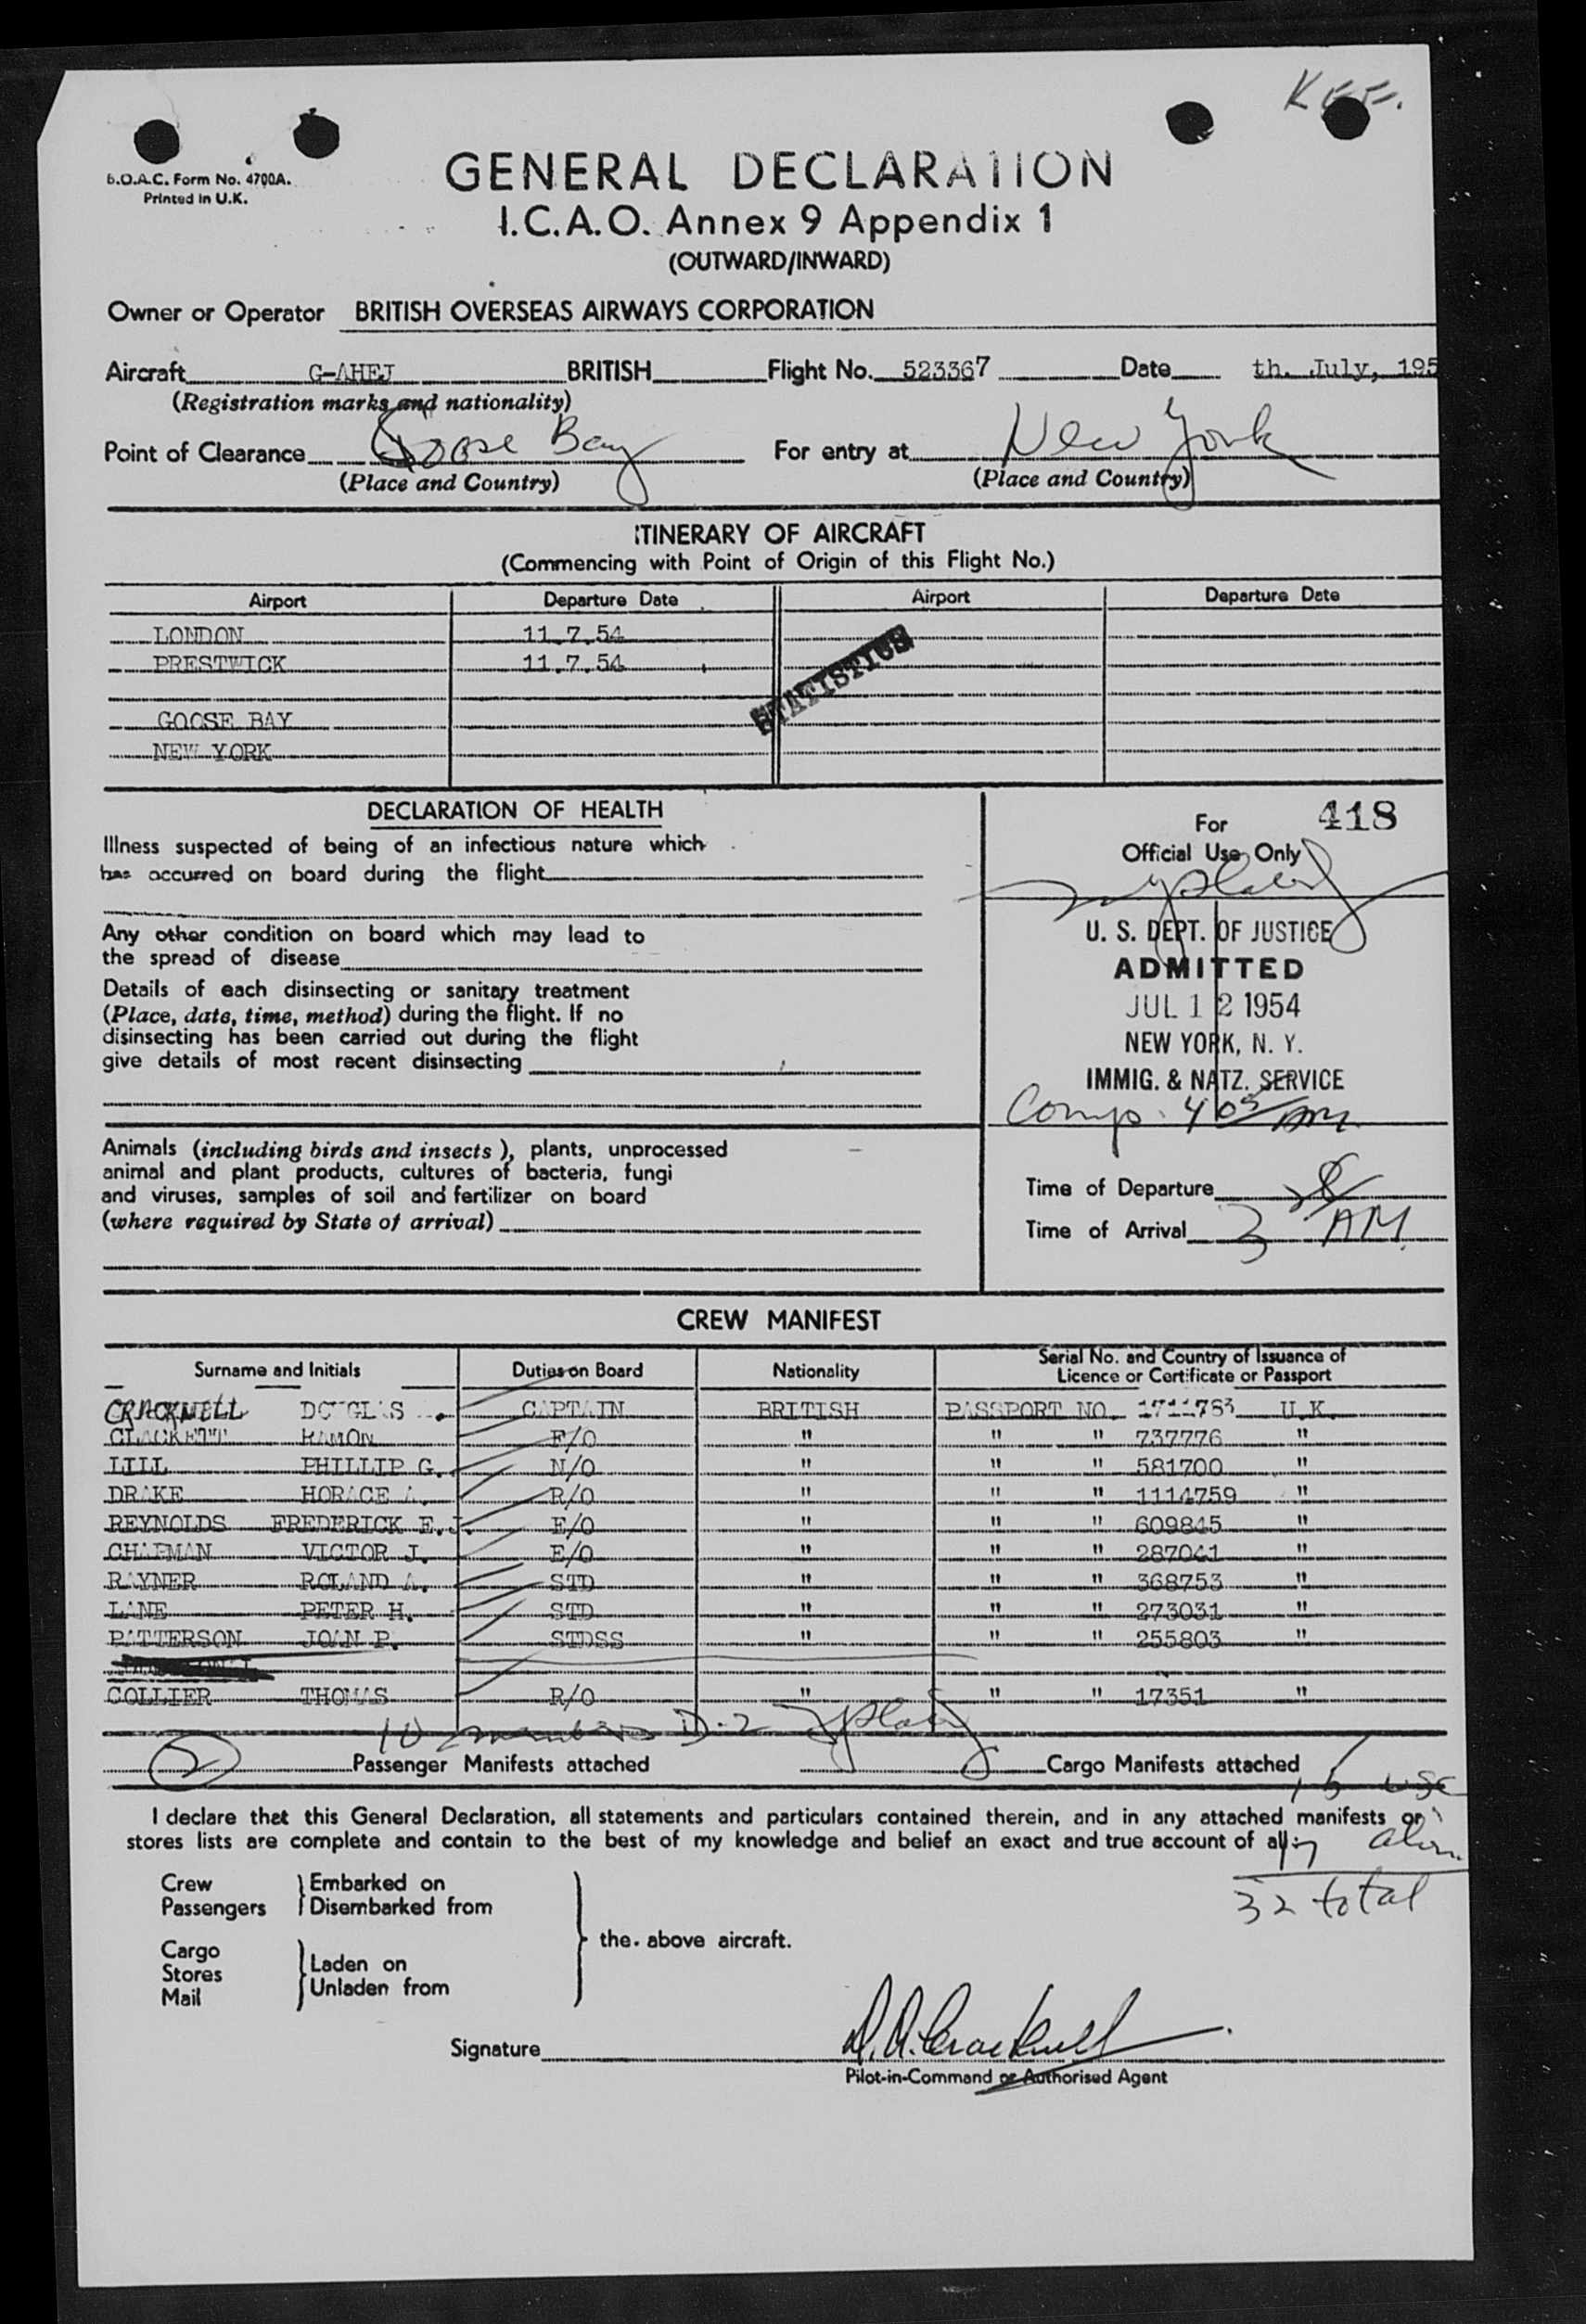 K
B.O.A.C. Form No. 4700A.
Printed in U.K.
GENERAL DECLARATION
I.C.A.O. Annex 9 Appendix 1
(OUTWARD/INWARD)
Owner or Operator BRITISH OVERSEAS AIRWAYS CORPORATION
Aircraft G-AHEJ BRITISH Flight No. 523367 Date th. July, 195
(Registration marks and nationality)
Point of Clearance Goose Bay For entry at New York
(Place and Country) (Place and Country)
ITINERARY OF AIRCRAFT
(Commencing with Point of Origin of this Flight No.)
Airport Departure Date Airport Departure Date
LONDON 11.7.54
PRESTWICK 11.7.54
STATISTICS
GOOSE BAY
NEW YORK
DECLARATION OF HEALTH
Illness suspected of being of an infectious nature which
has occurred on board during the flight
Any other condition on board which may lead to
the spread of disease
Details of each disinsecting or sanitary treatment
(Place, date, time, method) during the flight. If no
disinsecting has been carried out during the flight
give details of most recent disinsecting
Animals (including birds and insects), plants, unprocessed
animal and plant products, cultures of bacteria, fungi
and viruses, samples of soil and fertilizer on board
(where required by State of arrival)
For 418
Official Use Only
U. S. DEPT. OF JUSTICE
ADMITTED
JUL 12 1954
NEW YORK, N. Y.
IMMIG. & NATZ. SERVICE
Comp. 4 05 AM
Time of Departure
Time of Arrival 3 AM
CREW MANIFEST
Surname and Initials Duties on Board Nationality Serial No. and Country of Issuance of
Licence or Certificate or Passport
CRACKNELL DOUGLAS . CAPTAIN BRITISH PASSPORT NO. 1711783 U.K.
CLACKETT RAMON F/O " " " 737776 "
LILL PHILLIP G. N/O " " " 581700 "
DRAKE HORACE A. R/O " " " 1114759 "
REYNOLDS FREDERICK E.J. E/O " " " 609845 "
CHAPMAN VICTOR J. E/O " " " 287041 "
RAYNER ROLAND A. STD " " " 368753 "
LANE PETER H. STD " " " 273031 "
PATTERSON JOAN P. STDSS " " " 255803 "
COLLIER THOMAS R/O " " " 17351 "
10 members D-2
2 Passenger Manifests attached Cargo Manifests attached
15 USC
I declare that this General Declaration, all statements and particulars contained therein, and in any attached manifests or
stores lists are complete and contain to the best of my knowledge and belief an exact and true account of all:
17 alien
32 total
Crew Embarked on
Passengers Disembarked from
the above aircraft.
Cargo
Stores Laden on
Mail Unladen from
Signature D.A. Cracknell
Pilot-in-Command or Authorised Agent